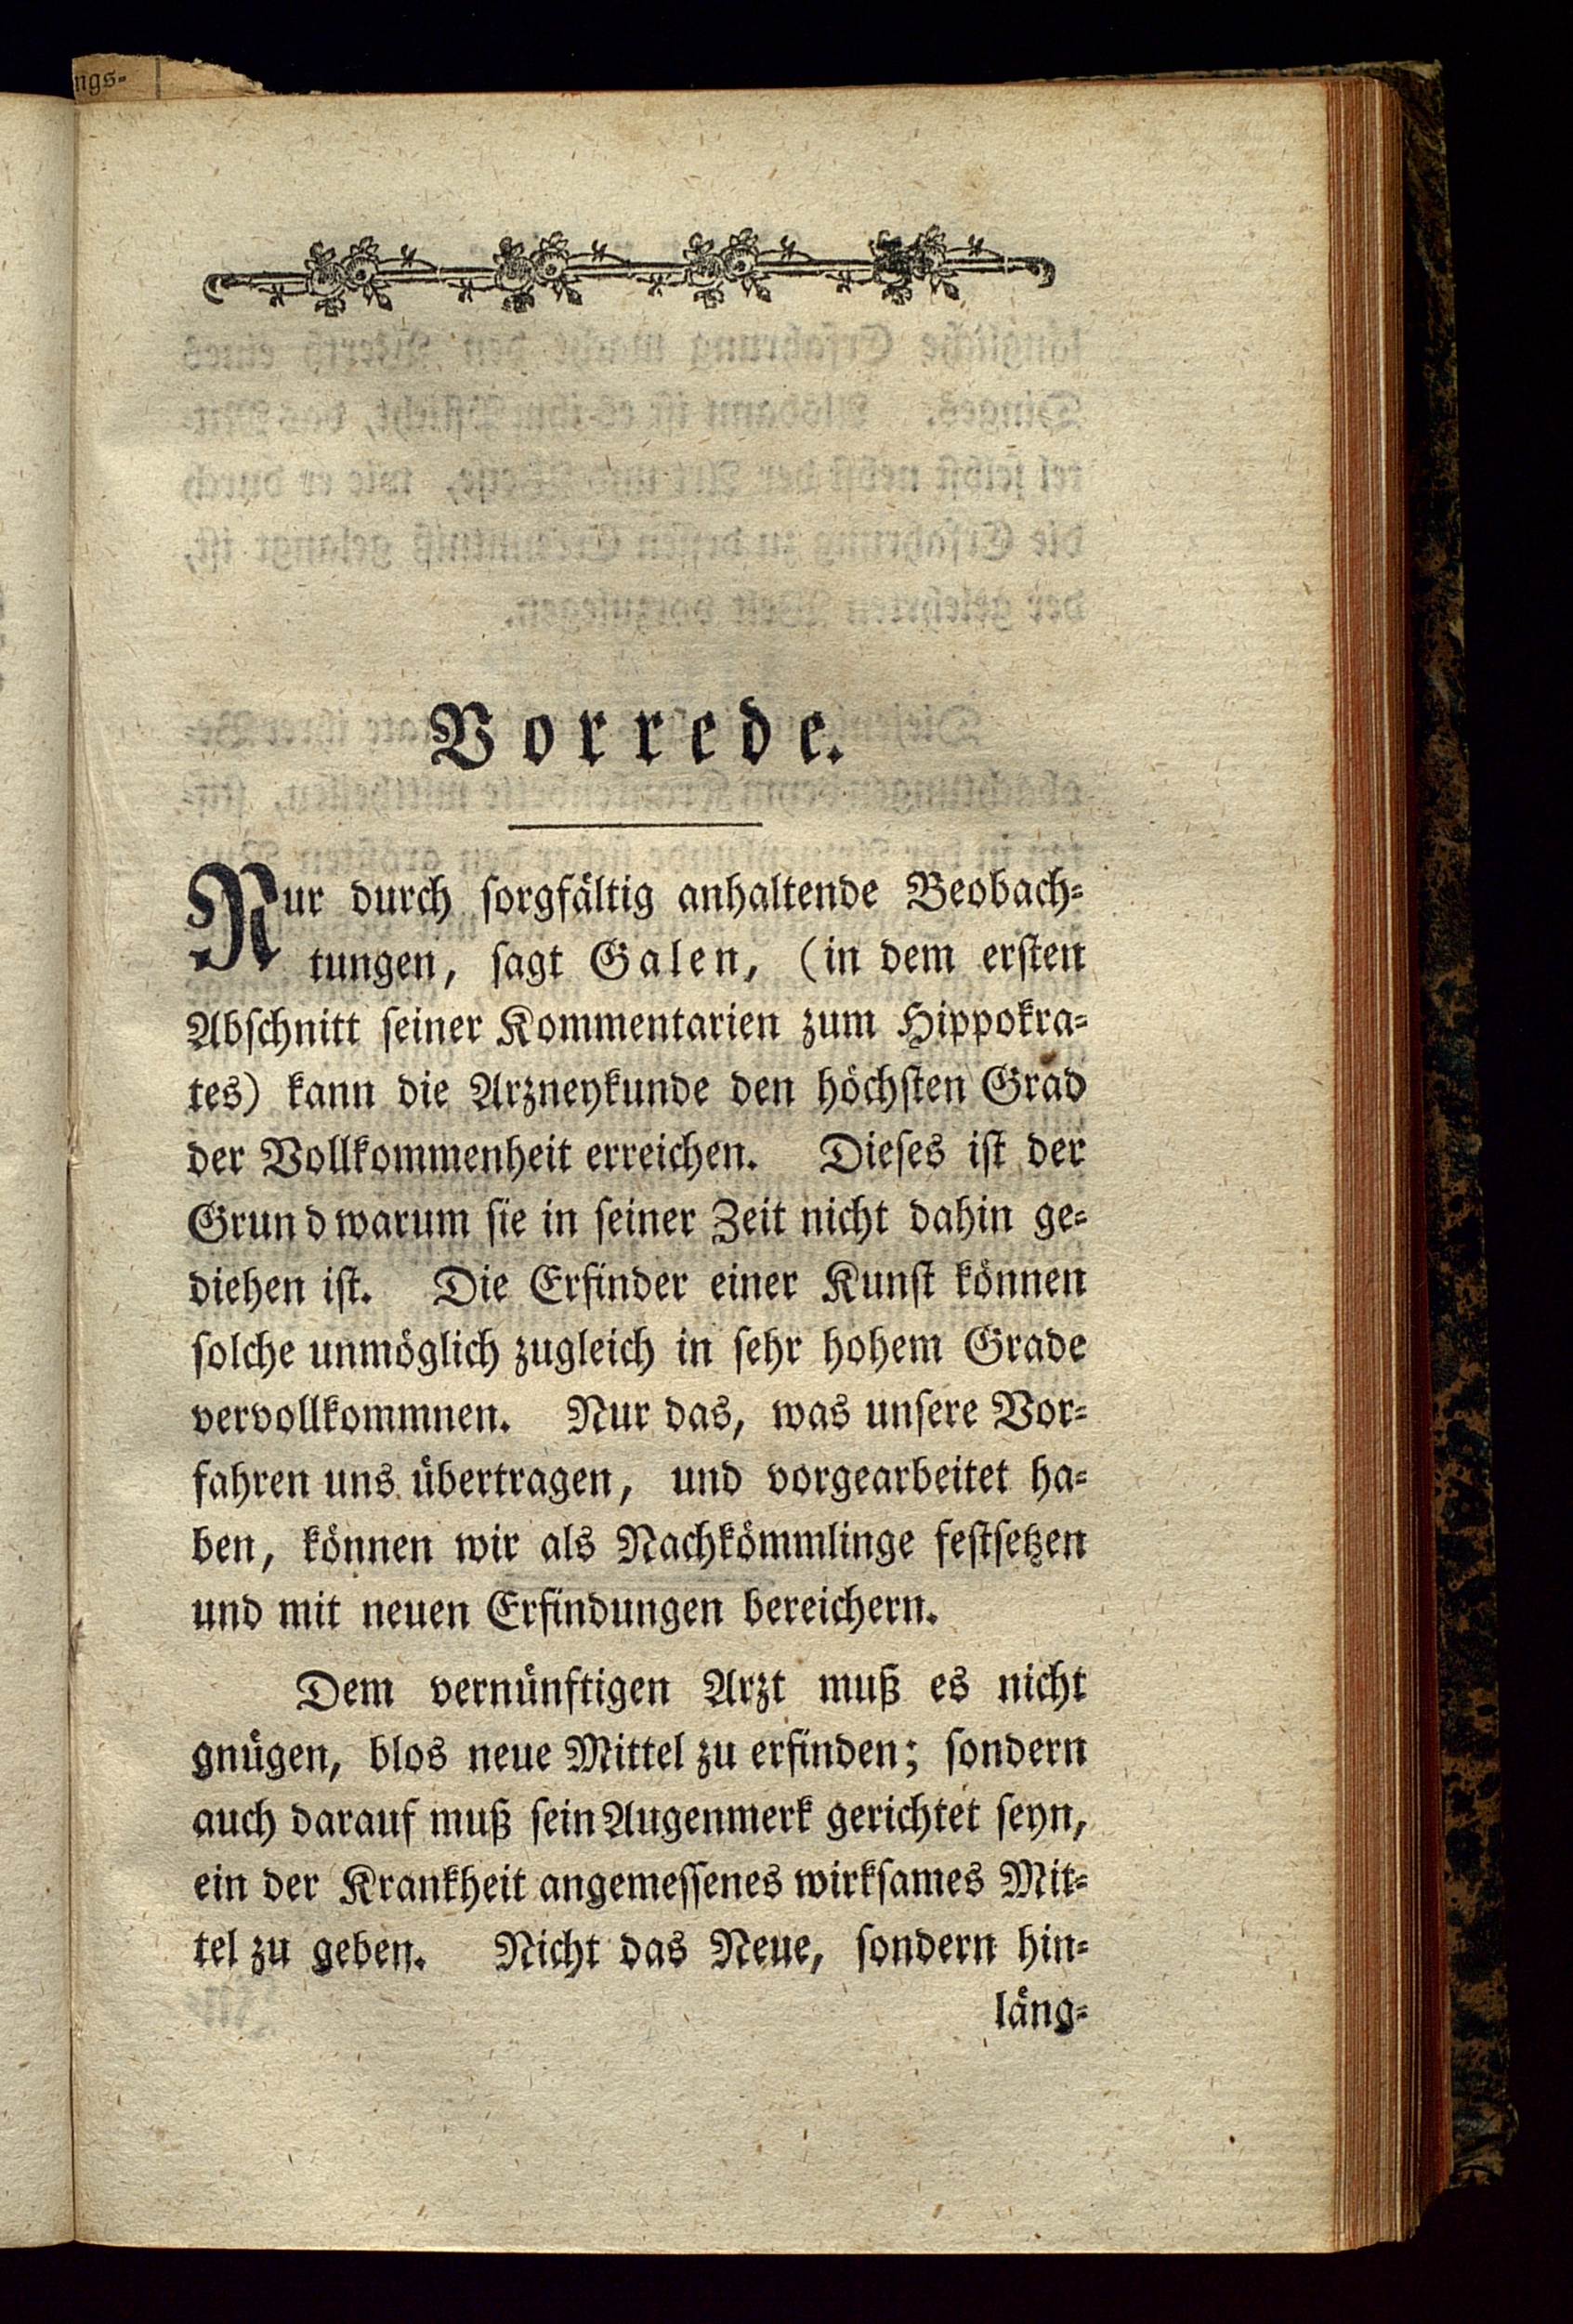 ngs-
Vorrede.
Nur durch ſorgfältig anhaltende Beobach-
tungen, ſagt Galen, (in dem erſten
Abſchnitt ſeiner Kommentarien zum Hippokra-
tes) kann die Arzneykunde den höchſten Grad
der Vollkommenheit erreichen. Dieſes iſt der
Grund warum ſie in ſeiner Zeit nicht dahin ge-
diehen iſt. Die Erfinder einer Kunſt können
ſolche unmöglich zugleich in ſehr hohem Grade
vervollkommnen. Nur das, was unſere Vor-
fahren uns übertragen, und vorgearbeitet ha-
ben, können wir als Nachkömmlinge feſtſetzen
und mit neuen Erfindungen bereichern.
Dem vernünftigen Arzt muß es nicht
gnügen, blos neue Mittel zu erfinden; ſondern
auch darauf muß ſein Augenmerk gerichtet ſeyn,
ein der Krankheit angemeſſenes wirkſames Mit-
tel zu geben. Nicht das Neue, ſondern hin-
läng-